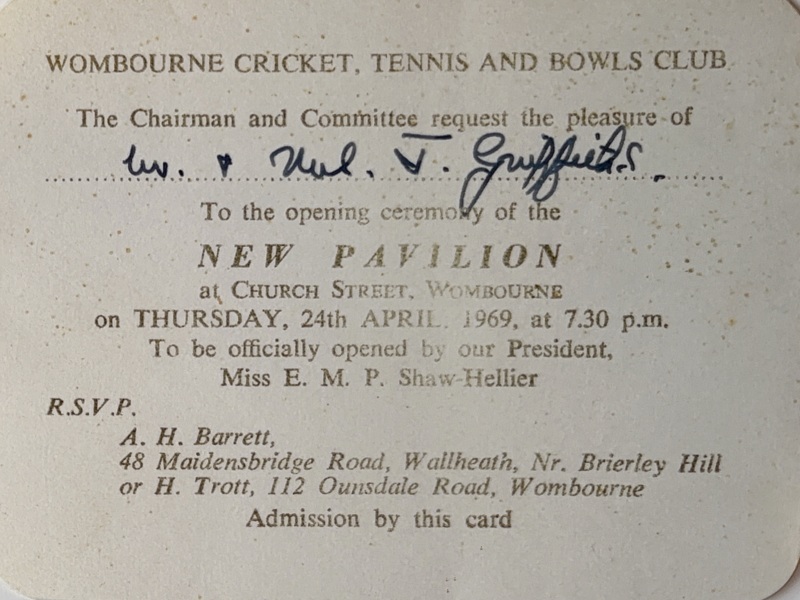 WOMBOURNE CRICKET, TENNIS AND BOWLS CLUB
The Chairman and Committee request the pleasure of
Mr. & Mrs. J. Griffiths.
To the opening ceremony of the
NEW PAVILION
at CHURCH STREET, WOMBOURNE
on THURSDAY, 24th APRIL, 1969, at 7.30 p.m.
To be officially opened by our President,
Miss E. M. P. Shaw-Hellier
R.S.V.P.
A. H. Barrett,
48 Maidensbridge Road, Wallheath, Nr. Brierley Hill
or H. Trott, 112 Ounsdale Road, Wombourne
Admission by this card